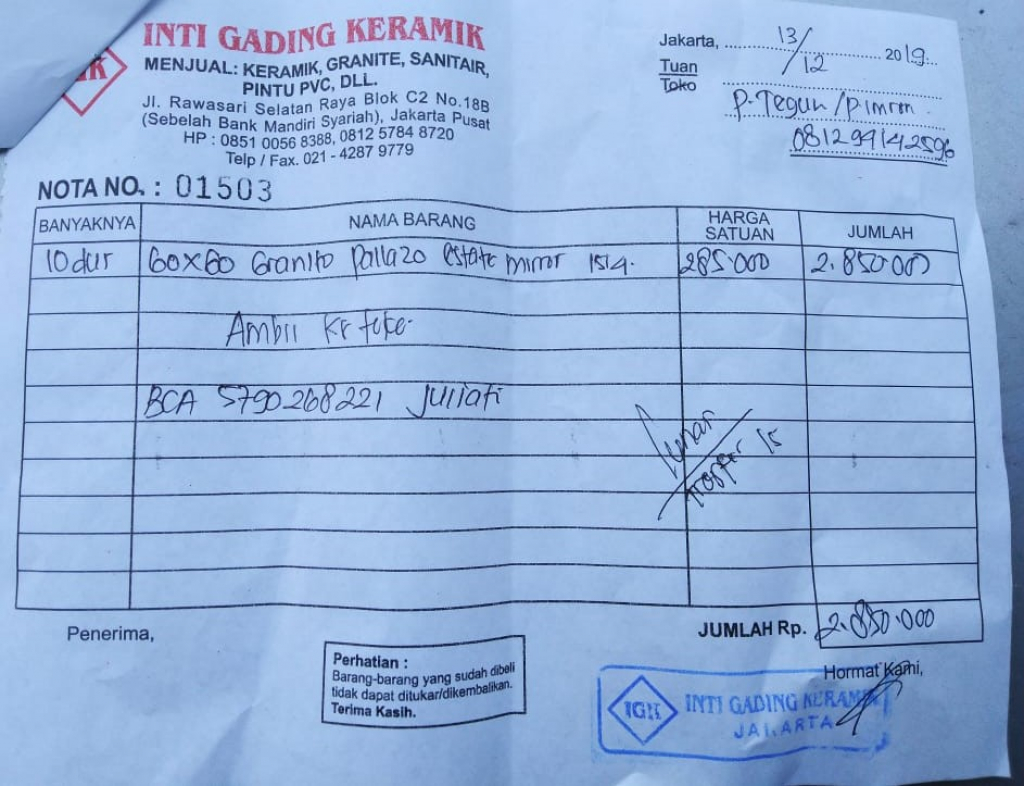 INTI GADING KERAMIK
MENJUAL: KERAMIK, GRANITE, SANITAIR,
PINTU PVC, DLL.
Jl. Rawasari Selatan Raya Blok C2 No.18B
(Sebelah Bank Mandiri Syariah), Jakarta Pusat
HP : 0851 0056 8388, 0812 5784 8720
Telp / Fax. 021 - 4287 9779
Jakarta, 13/12 2019
Tuan
Toko
P. Teguh / P. Imron
081294142596
NOTA NO. : 01503
BANYAKNYA NAMA BARANG HARGA SATUAN JUMLAH
10 dus 60x60 Granito Pallazo estate mirror 285.000 2.850.000
Ambil
BCA 5790268221 Juliati
Lunas
JUMLAH Rp. 2.850.000
Penerima,
Perhatian :
Barang-barang yang sudah dibeli
tidak dapat ditukar/dikembalikan.
Terima Kasih.
Hormat Kami,
IGK INTI GADING KERAMIK
JAKARTA